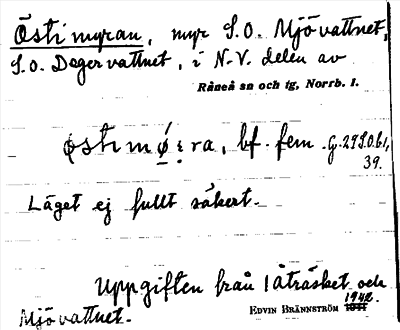 Östimyran, myr S.O. Mjövattnet,
S.O. Degervattnet, i N.V. delen av
Råneå sn och tg, Norrb. l.
østimø̣ːra, bf. fem. G. 29 S.O. b1,
39.
Läget ej fullt säkert.
Uppgiften från Låträsket och
Mjövattnet.
EDVIN BRÄNNSTRÖM 1942.